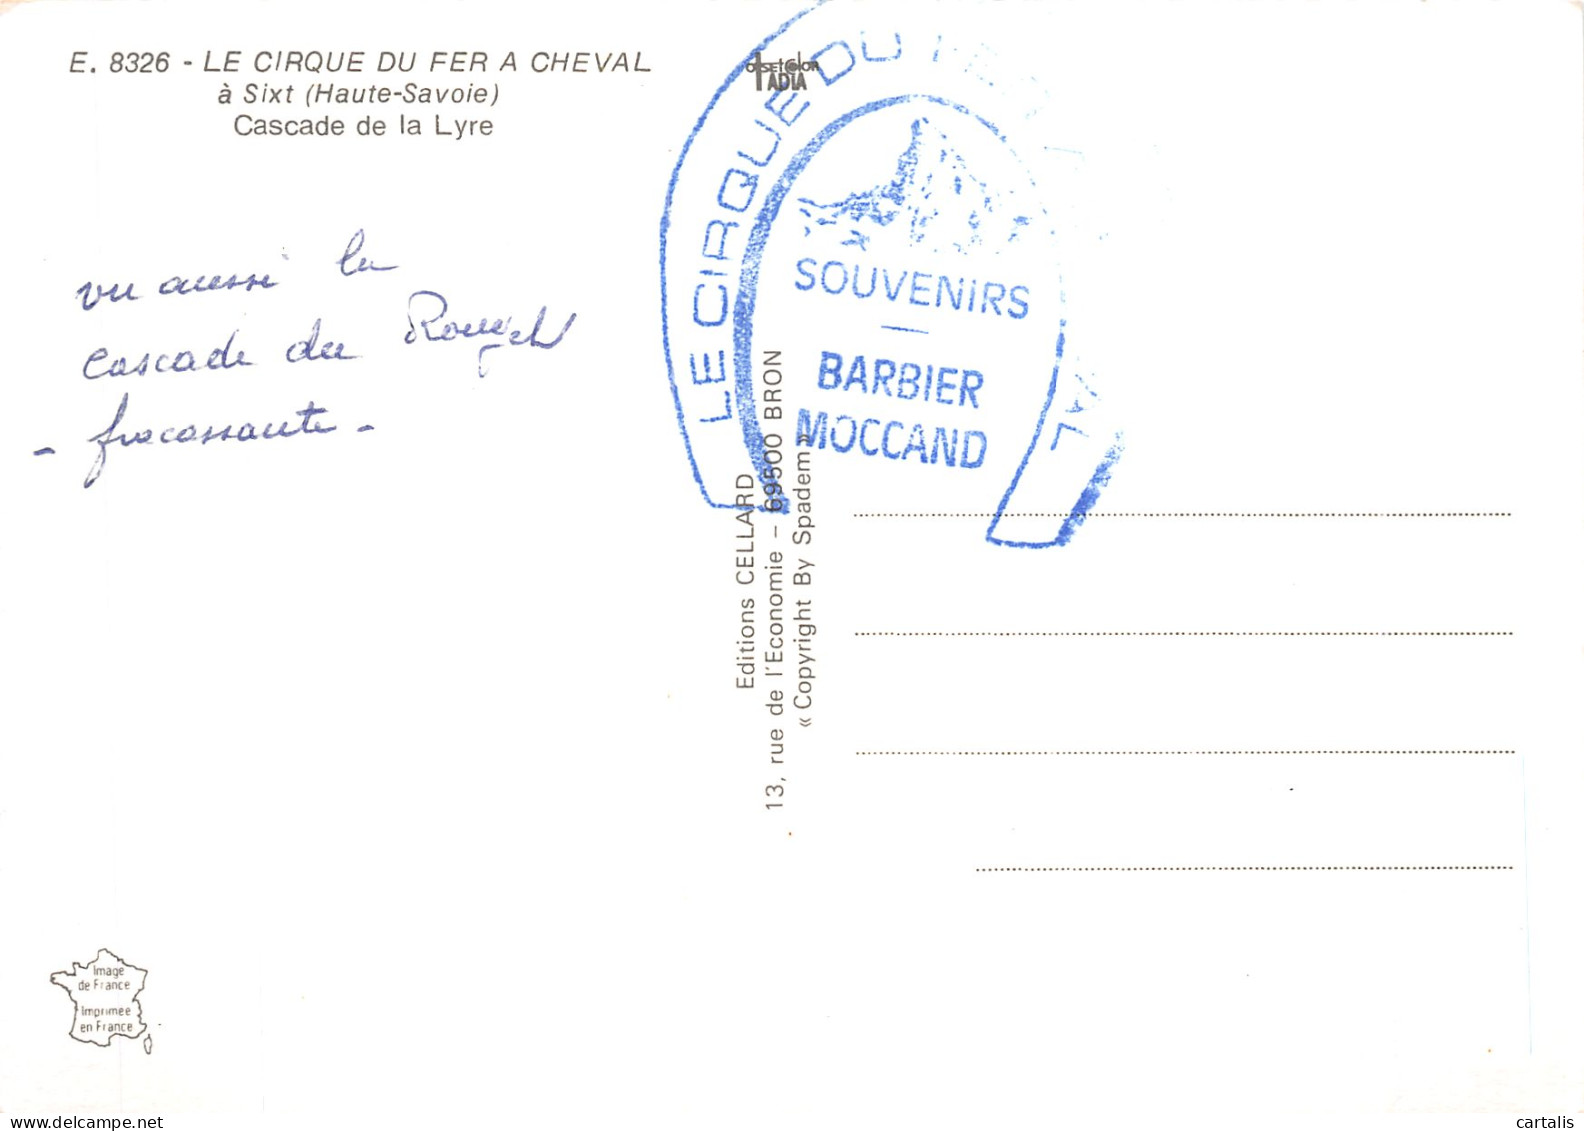 E. 8326 - LE CIRQUE DU FER A CHEVAL
à Sixt (Haute-Savoie)
Cascade de la Lyre
vu aussi la
cascade du Rouget
- fracassante -
LE CIRQUE DU FER VAL
SOUVENIRS
BARBIER
MOCCAND
Editions CELLARD
13, rue de l'Economie - 69500 BRON
« Copyright By Spadem »
Image
de France
Imprimée
en France
cartalis
delcampe.net